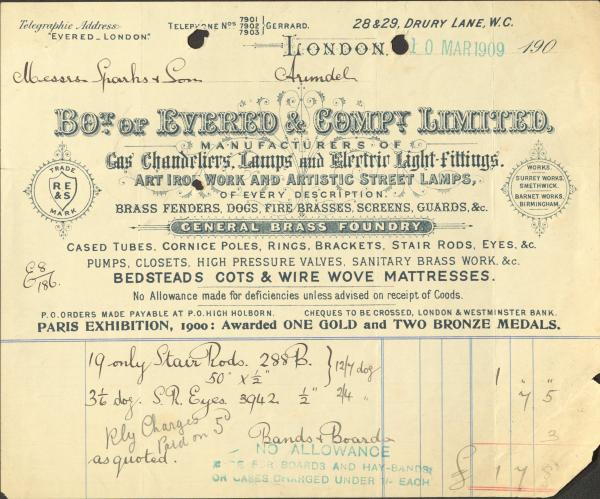 Telegraphic Address: "EVERED_LONDON."
TELEPHONE Nos 7901 7902 7903 } GERRARD.
28 & 29, DRURY LANE, W.C.
LONDON, 10 MAR 1909 190
Messrs Sparks & Son Arundel
BOT. OF EVERED & COMPY LIMITED,
MANUFACTURERS OF
Gas Chandeliers, Lamps and Electric Light-fittings.
ART IRON WORK AND ARTISTIC STREET LAMPS,
OF EVERY DESCRIPTION.
TRADE
RE
&S
MARK
WORKS
SURREY WORKS.
SMETHWICK.
BARNET WORKS.
BIRMINGHAM.
BRASS FENDERS, DOGS, FIRE BRASSES, SCREENS, GUARDS, &c.
GENERAL BRASS FOUNDRY
CASED TUBES, CORNICE POLES, RINGS, BRACKETS, STAIR RODS, EYES, &c.
PUMPS, CLOSETS, HIGH PRESSURE VALVES, SANITARY BRASS WORK, &c.
BEDSTEADS COTS & WIRE WOVE MATTRESSES.
E8/186.
No Allowance made for deficiencies unless advised on receipt of Goods.
P.O. ORDERS MADE PAYABLE AT P.O. HIGH HOLBORN. CHEQUES TO BE CROSSED, LONDON & WESTMINSTER BANK.
PARIS EXHIBITION, 1900: Awarded ONE GOLD and TWO BRONZE MEDALS.
19 only Stair Rods. 288B. } 12/7 dog 1 " "
50" x ½"
3½ dog. S.R. Eyes. 3942 ½" 2/4 " 7 5
Rly Charges Paid on 5d
Bands & Boards 3
as quoted.
NO ALLOWANCE
MADE FOR BOARDS AND HAY-BANDS
OR CASES CHARGED UNDER 1/- EACH
£ 1 7 8